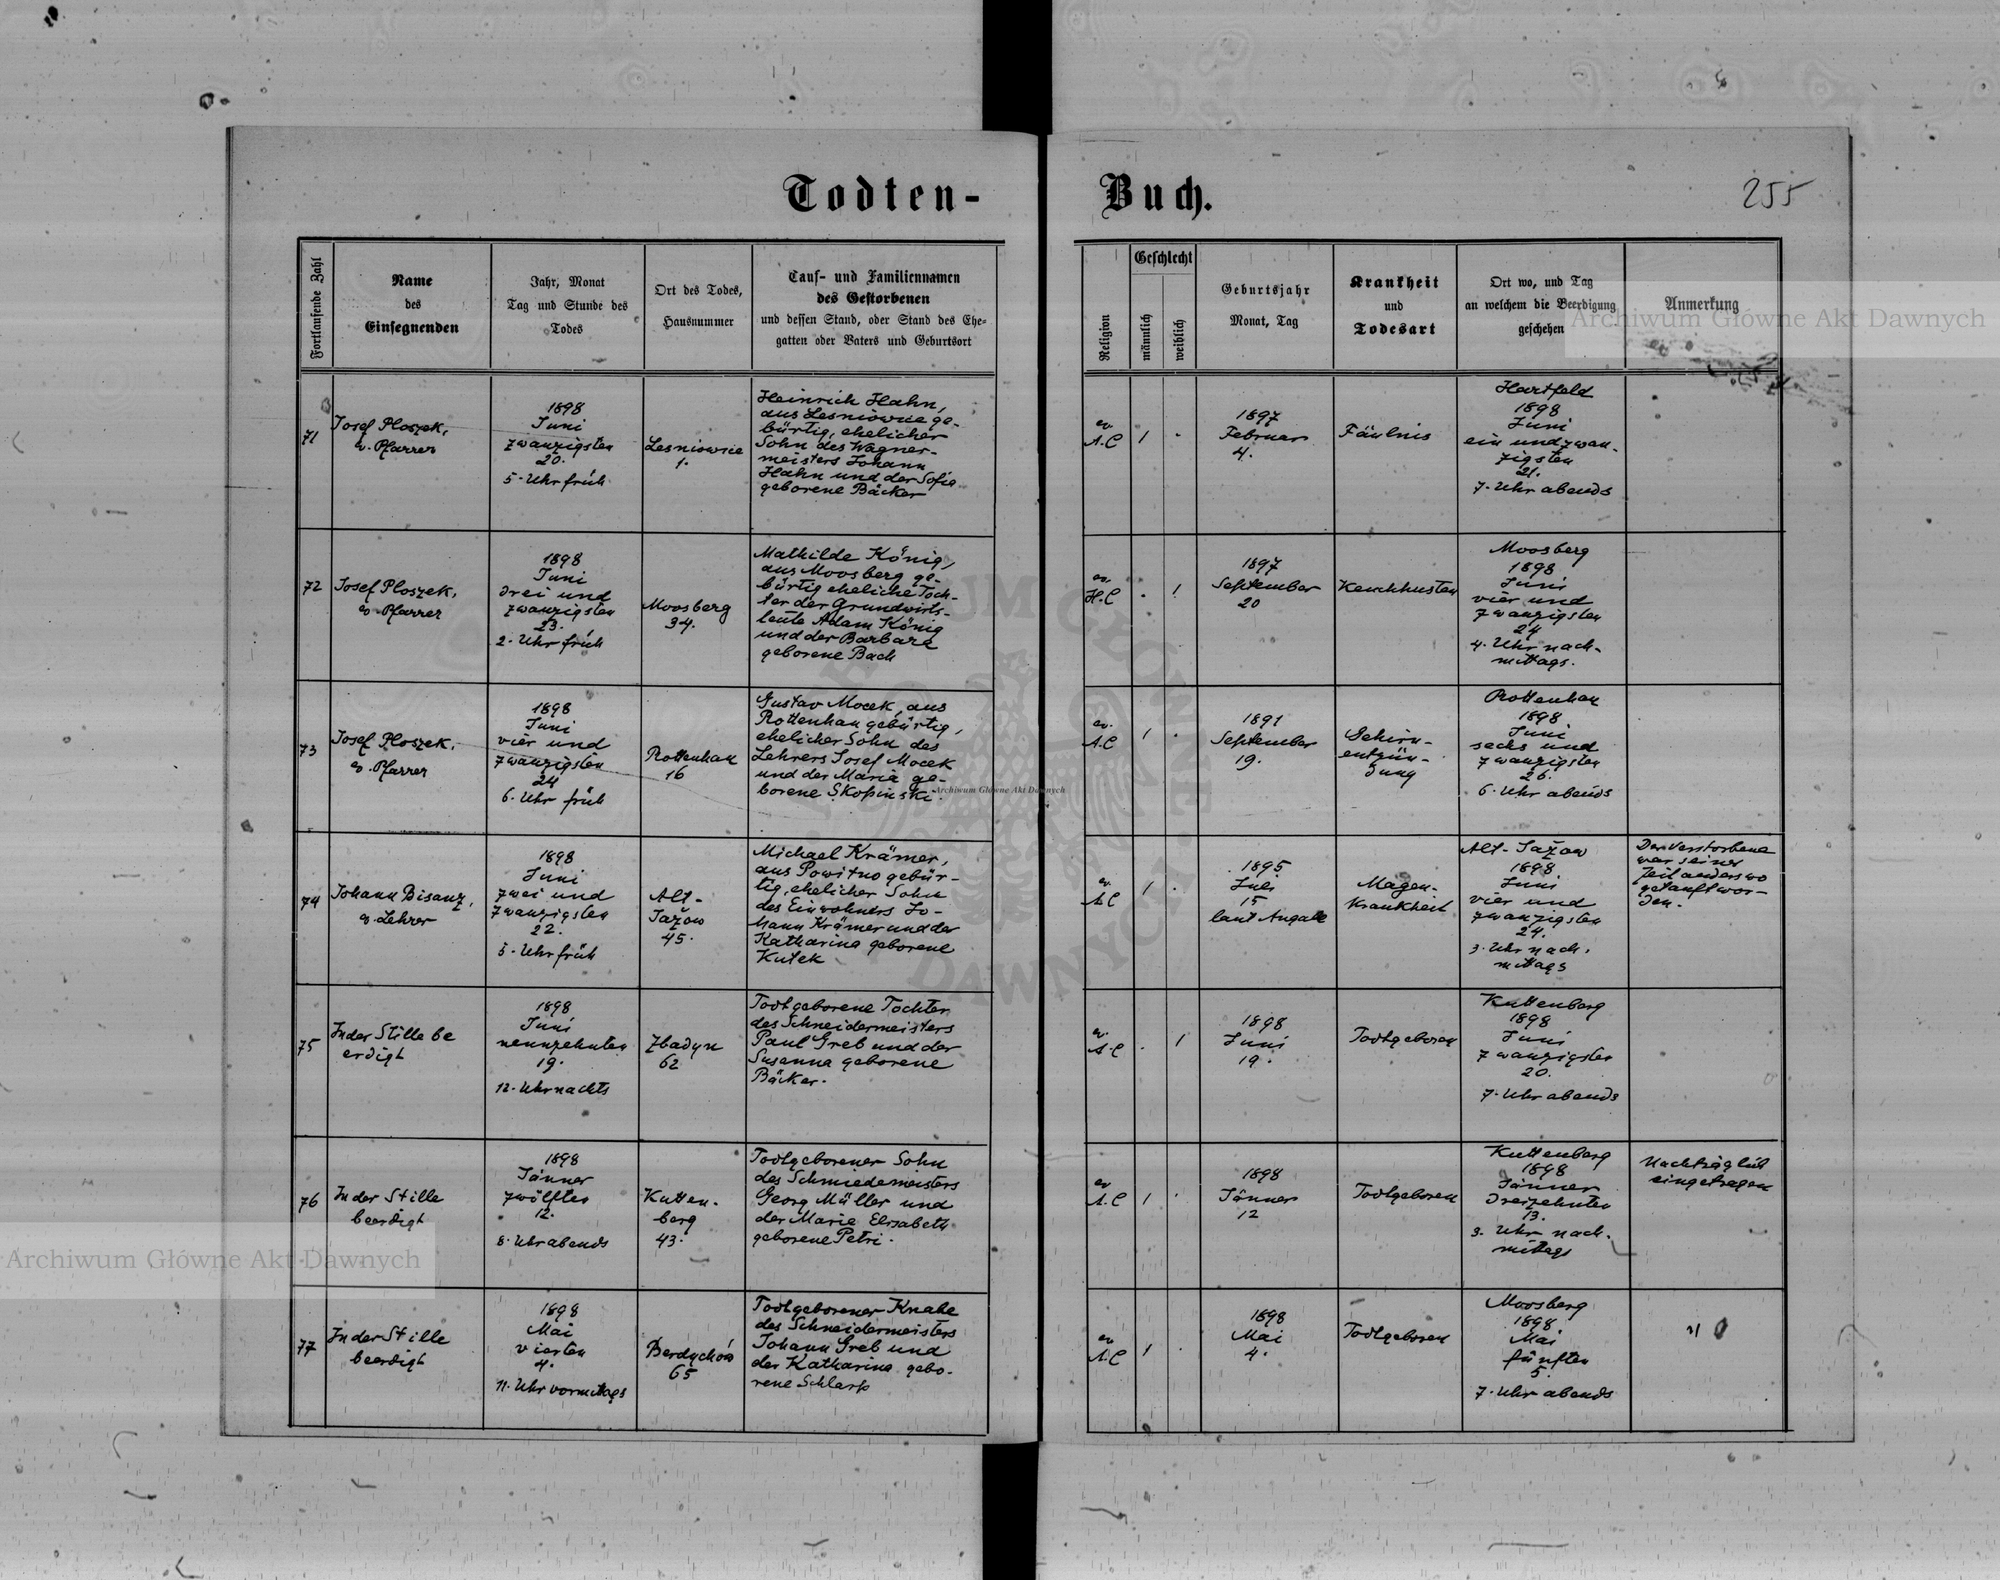 Todten-
Buch.
255
Fortlaufende Zahl
Name
des
Einsegnenden
Jahr, Monat
Tag und Stunde des
Todes
Ort des Todes,
Hausnummer
Tauf- und Familiennamen
des Gestorbenen
und dessen Stand, oder Stand des Ehe-
gatten oder Vaters und Geburtsort
Religion
Geschlecht
männlich
weiblich
Geburtsjahr
Monat, Tag
Krankheit
und
Todesart
Ort wo, und Tag
an welchem die Beerdigung
geschehen
Anmerkung
Archiwum Główne Akt Dawnych
71
Josef Ploszek,
ev. Pfarrer
1898
Juni
zwanzigsten
20.
5. Uhr früh
Lesniowice
1.
Heinrich Hahn,
aus Lesniowice ge-
bürtig, ehelicher
Sohn des Wagner-
meisters Johann
Hahn und der Sofie
geborene Bäcker
ev.
A.C
1
1897
Februar
4.
Fäulnis
Hartfeld
1898
Juni
ein und zwan-
zigsten
21.
7. Uhr abends
72
Josef Ploszek,
ev. Pfarrer
1898
Juni
drei und
zwanzigsten
23.
2. Uhr früh
Moosberg
34.
Mathilde König,
aus Moosberg ge-
bürtig eheliche Toch-
ter der Grundwirts-
leute Adam König
und der Barbara
geborene Bach
ev.
H.C
1
1897
September
20
Keuchhusten
Moosberg
1898
Juni
vier und
zwanzigsten
24
4. Uhr nach-
mittags.
73
Josef Ploszek,
ev. Pfarrer
1898
Juni
vier und
zwanzigsten
24
6. Uhr früh
Rottenhan
16
Gustav Mocek, aus
Rottenhan gebürtig,
ehelicher Sohn des
Lehrers Josef Mocek
und der Maria ge-
borene Skopinski.
ev.
A.C
1
1891
September
19.
Gehirn-
entzün-
dung
Rottenhan
1898
Juni
sechs und
zwanzigsten
26.
6. Uhr abends
Archiwum Główne Akt Dawnych
74
Johann Bisanz,
ev. Lehrer
1898
Juni
zwei und
zwanzigsten
22.
5. Uhr früh
Alt-
Jażow
45.
Michael Krämer,
aus Powitno gebür-
tig, ehelicher Sohn
des Einwohners Jo-
hann Krämer und der
Katharina geborene
Kutek
ev.
A.C
1
1895
Juli
15
laut Angabe
Magen-
krankheit
Alt-Jażow
1898
Juni
vier und
zwanzigsten
24.
3. Uhr nach-
mittags
Der Verstorbene
war seiner
Zeit anderswo
getauft wor-
den.
75
In der Stille be
erdigt
1898
Juni
neunzehnten
19.
12. Uhr nachts
Zbadyn
62
Todtgeborene Tochter
des Schneidermeisters
Paul Greb und der
Susanna geborene
Bäcker.
ev.
A.C
1
1898
Juni
19.
Todtgeboren
Kuttenberg
1898
Juni
zwanzigsten
20.
7. Uhr abends
76
In der Stille
beerdigt
1898
Jänner
zwölften
12.
8. Uhr abends
Kutten-
berg
43.
Todtgeborener Sohn
des Schmiedemeisters
Georg Müller und
der Marie Elisabeth
geborene Petri.
ev
A.C
1
1898
Jänner
12
Todtgeboren
Kuttenberg
1898
Jänner
dreizehnten
13.
3. Uhr nach-
mittags
Nachträglich
eingetragen
Archiwum Główne Akt Dawnych
77
In der Stille
beerdigt
1898
Mai
vierten
4.
11. Uhr vormittags
Berdychów
65
Todtgeborener Knabe
des Schneidermeisters
Johann Greb und
der Katharina gebo-
rene Schlarp
ev
A.C
1
1898
Mai
4.
Todtgeboren
Moosberg
1898
Mai
fünften
5.
7. Uhr abends